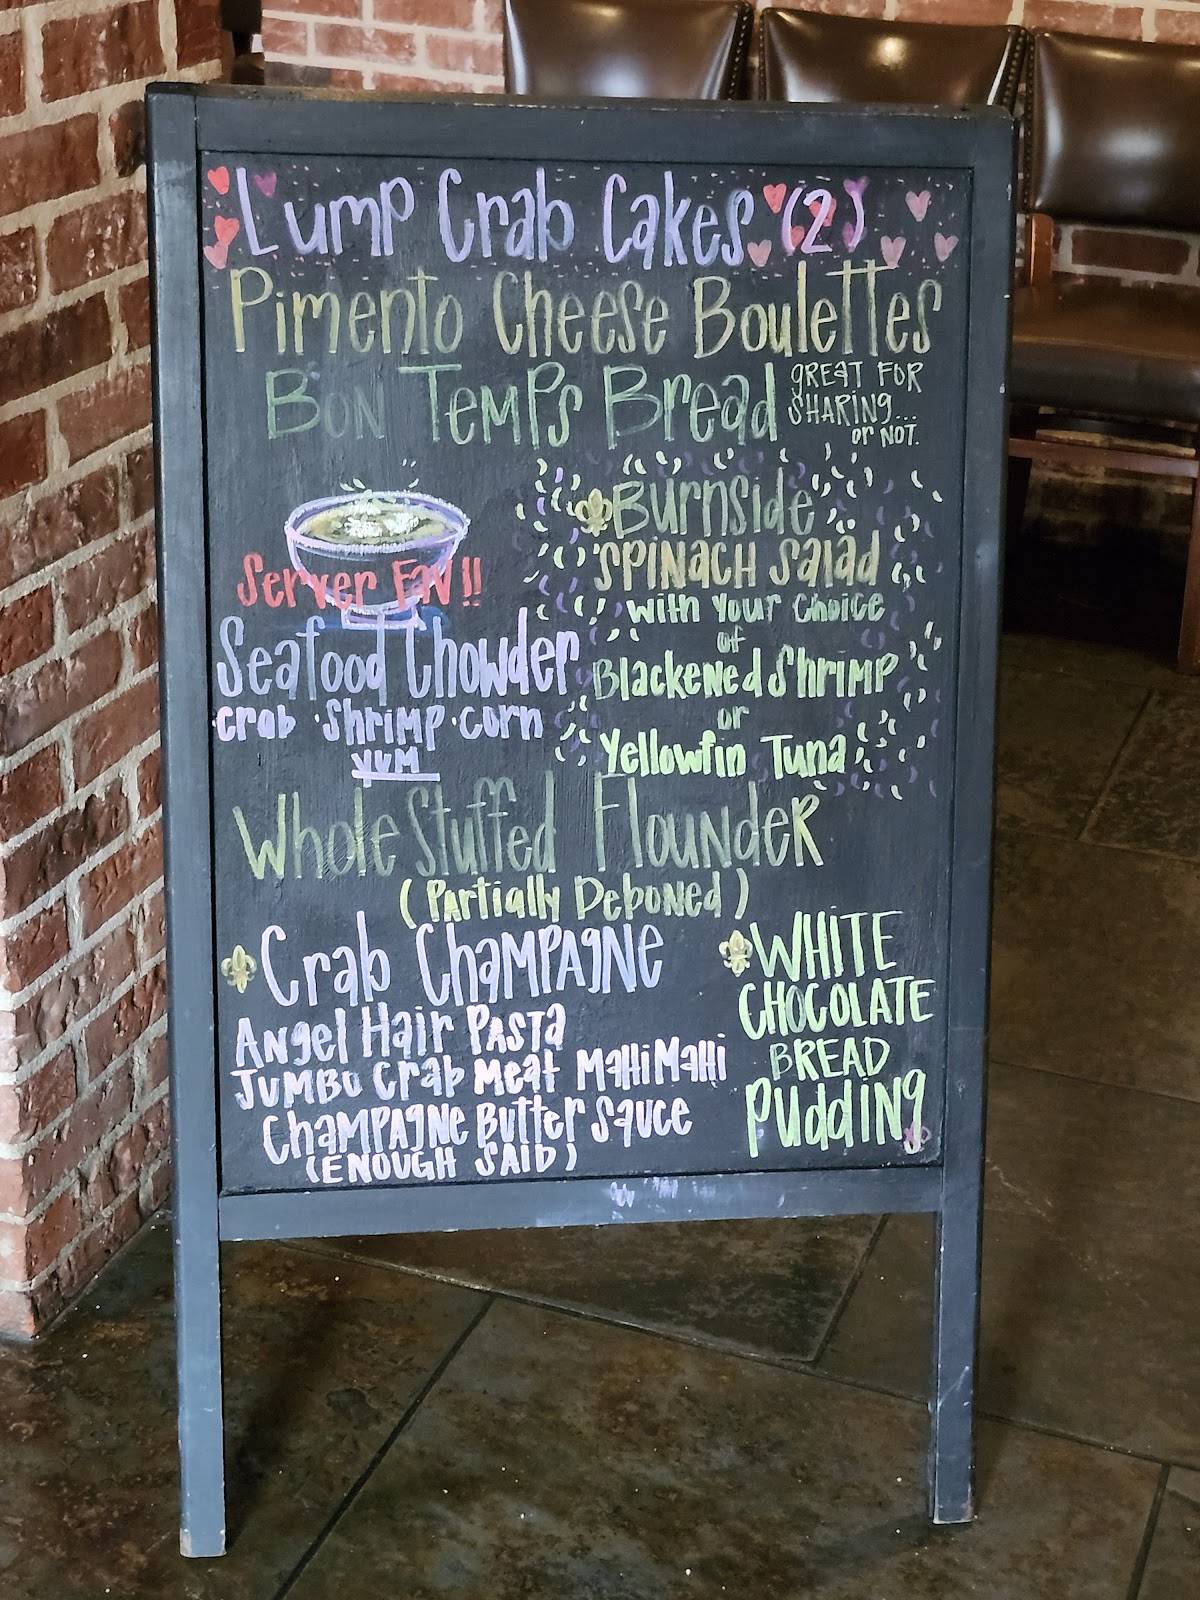 Lump Crab Cakes (2)
Pimento Cheese Boulettes
Bon Temps Bread
GREAT FOR
SHARING...
or NOT.
Server Fav!!
Seafood Chowder
crab · Shrimp · corn
YUM
Burnside
SPINACH Salad
with Your Choice
of
Blackened Shrimp
or
Yellowfin Tuna
Whole Stuffed Flounder
(Partially Deboned)
Crab Champagne
Angel Hair Pasta
Jumbo Crab Meat MahiMahi
Champagne Butter Sauce
(ENOUGH SAID)
WHITE
CHOCOLATE
BREAD
Pudding